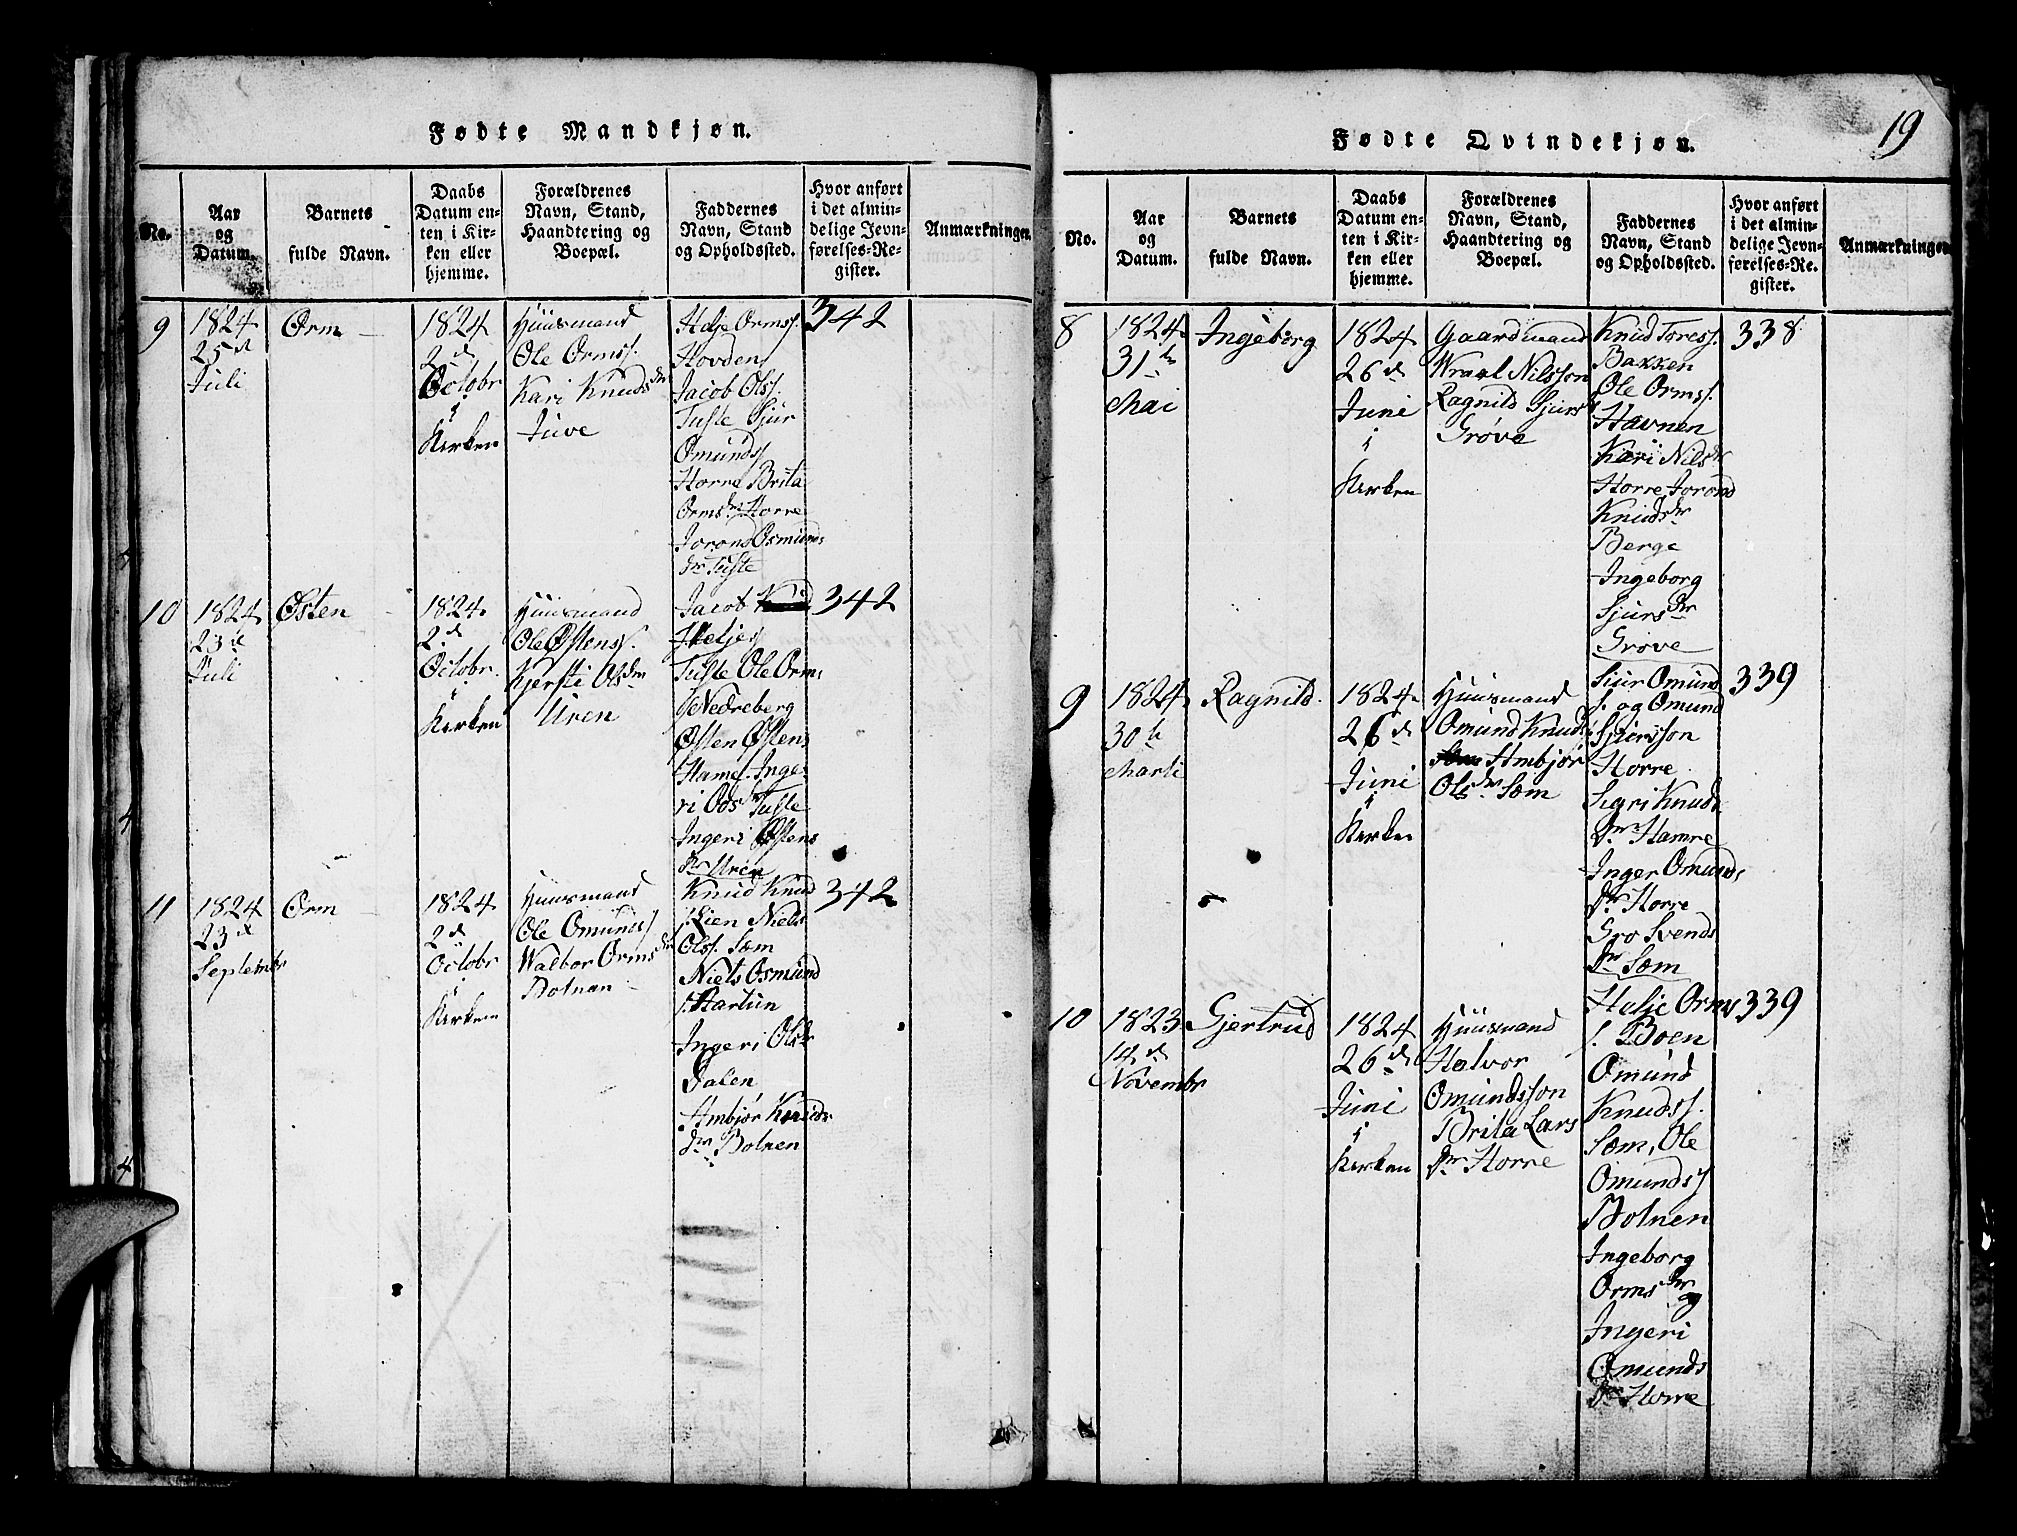 Fødte Mandkjøn.
No.
Aar
og
Datum.
Barnets
fulde Navn.
Daabs
Datum en-
ten i Kir-
ken eller
hjemme.
Forældrenes
Navn, Stand,
Haandtering og
Boepæl.
Faddernes
Navn, Stand
og Opholdssted.
Hvor anført
i det almin-
delige Jevn-
førelses-Re-
gister.
Anmærkninger.
9
1824
25de
Juli
Orm
1824
2d
Octobr
i
Kirken
Huusmand
Ole Ormss.
Kari Knudsdr
Juve
Helje Ormss.
Hovden
Jacob Olss.
Tufte Sjur
Omundss
Horre Brita
Ormsdr Horre
Jorond Osmunds
dr Tufte
342
10
1824
23de
Juli
Østen
1824
2d
Octobr.
i
Kirken
Huusmand
Ole Østenss.
Kjersti Olsdr
Uren
Jacob
Heljes
Tufte Ole Orms
s Nedreberg
Østen Østens
Hame. Inge
ri Ods Tufte
Ingeri Østens
dr Uren
342
11
1824
23de
Septembr
Orm
1824
2d
Octobr
Kirken
Huusmand
Ole Omundss
Walbor Ormsdr
Botnen
Knud Knud
s. Lien Niels
Olss. Sæm
Niels Osmund
s. Hartun
Ingeri Olsdr
Dalen
Ambjør Knuds
dr Botnen
342
19
Fødte Qvindekjøn.
No.
Aar
og
Datum.
Barnets
fulde Navn.
Daabs
Datum en-
ten i Kir-
ken eller
hjemme.
Forældrenes
Navn, Stand,
Haandtering og
Boepæl.
Faddernes
Navn, Stand
og Opholdssted.
Hvor anført
i det almin-
delige Jevn-
førelses-Re-
gister.
Anmærkninger
8
1824
31te
Mai
Ingeborg
1824
26d
Juni
i
Kirken
Gaardmand
Wraal Nilsson
Ragnild Sjurs
Grøve
Knud Toress.
Bakken
Ole Ormss.
Havnen
Kari Nilsdr
Horre Jorond
Knudsdr
Berge
Ingeborg
Sjursdr
Grøve
338
9
1824
30te
Marti
Ragnild.
1824
26d
Juni
i
Kirken
Huusmand
Omund Knuds
Ambjør
Olsdr Sæm
Siur Omund
s. og Omund
Sjursson
Horre
Sigri Knuds
dr Hamre
Inger Omunds
dr Horre
Gro Svends
dr Sæm
339
10
1823
14d
Novembr
Gjertrud
1824
26d
Juni
i
Kirken
Huusmand
Halvor
Omundsson
Brita Lars
dr Horre
Helje Orms
s. Boen
Omund
Knudss.
Sæm, Ole
Omundss
Botnen
Ingeborg
Ormsdr
og
Ingeri
Omunds
dr Horre
339